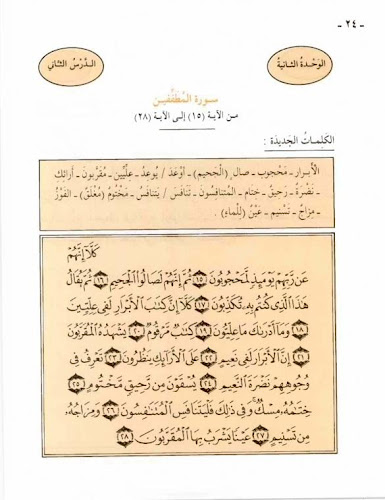 - ٢٤ -
الوَحْدَةُ الثانيَةُ
الـدَّرْسُ الثّاني
سـورة المُطَفِّفيـن
مـن الآيـة (١٥) إلى الآيـة (٢٨)
الكلمـاتُ الجَديدَة :
الأَبْـرار ـ مَحْجوب ـ صالٍ (الجَحيم) ـ أَوْعَدَ / يوعِدُ ـ عِلِّيّين ـ مُقَرَّبونَ ـ أَرائِك
نَضْرَةُ ـ رَحيق ـ خِتام ـ المُتَنافِسونَ ـ تَنافَسَ / يَتَنافَسُ ـ مَخْتوم (مُغْلَق) ـ الفَوْزُ
ـ مِزاجُ ـ تَسْنيم ـ عَيْنٌ (لِلْماءِ) ـ
كَلَّآ إِنَّهُمْ
عَن رَّبِّهِمْ يَوْمَئِذٍ لَّمَحْجُوبُونَ ١٥ ثُمَّ إِنَّهُمْ لَصَالُوا۟ ٱلْجَحِيمِ ١٦ ثُمَّ يُقَالُ
هَٰذَا ٱلَّذِى كُنتُم بِهِۦ تُكَذِّبُونَ ١٧ كَلَّآ إِنَّ كِتَٰبَ ٱلْأَبْرَارِ لَفِى عِلِّيِّينَ
١٨ وَمَآ أَدْرَىٰكَ مَا عِلِّيُّونَ ١٩ كِتَٰبٌ مَّرْقُومٌ ٢٠ يَشْهَدُهُ ٱلْمُقَرَّبُونَ
٢١ إِنَّ ٱلْأَبْرَارَ لَفِى نَعِيمٍ ٢٢ عَلَى ٱلْأَرَآئِكِ يَنظُرُونَ ٢٣ تَعْرِفُ فِى
وُجُوهِهِمْ نَضْرَةَ ٱلنَّعِيمِ ٢٤ يُسْقَوْنَ مِن رَّحِيقٍ مَّخْتُومٍ ٢٥
خِتَٰمُهُۥ مِسْكٌ ۚ وَفِى ذَٰلِكَ فَلْيَتَنَافَسِ ٱلْمُتَنَٰفِسُونَ ٢٦ وَمِزَاجُهُۥ
مِن تَسْنِيمٍ ٢٧ عَيْنًا يَشْرَبُ بِهَا ٱلْمُقَرَّبُونَ ٢٨